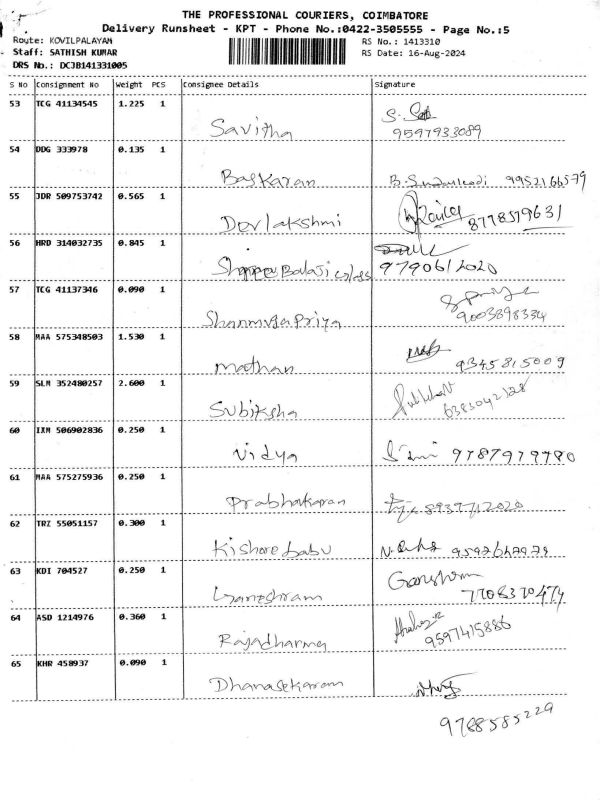 THE PROFESSIONAL COURIERS, COIMBATORE
Delivery Runsheet - KPT - Phone No.:0422-3505555 - Page No.:5
Route: KOVILPALAYAM
Staff: SATHISH KUMAR
DRS No.: DCJB141331005
RS No.: 1413310
RS Date: 16-Aug-2024
S No Consignment No Weight PCS Consignee Details Signature
53 TCG 41134545 1.225 1
Savitha 9597933089
54 DDG 333978 0.135 1
Baskaran 9952166579
55 JDR 509753742 0.565 1
Devlakshmi 8778579631
56 HRD 314032735 0.845 1
Balaji 9790612020
57 TCG 41137346 0.090 1
Shanmuga Priya 9003898334
58 MAA 575348503 1.530 1
Mathan 9345815009
59 SLM 352480257 2.600 1
Subiksha 6383042328
60 IXM 506902836 0.250 1
Vidya 9787979780
61 MAA 575275936 0.250 1
Prabhakaran 8937712020
62 TRZ 55051157 0.300 1
Kishore babu
63 KDI 704527 0.250 1
Ganeshram 7708370474
64 ASD 1214976 0.360 1
Rajadharma 9597415886
65 KHR 458937 0.090 1
Dhanasekaram
9788585229